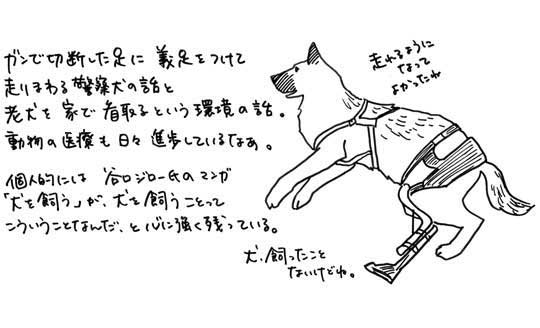 ガンで切断した足に 義足をつけて
走りまわる警察犬の話と
老犬を家で看取るという環境の話。
動物の医療も日々進歩しているなぁ。
個人的には 谷口ジロー氏のマンガ
「犬を飼う」が、犬を飼うことって
こういうことなんだ、と心に強く残っている。
走れるように
なって
よかったね
犬、飼ったこと
ないけどね。